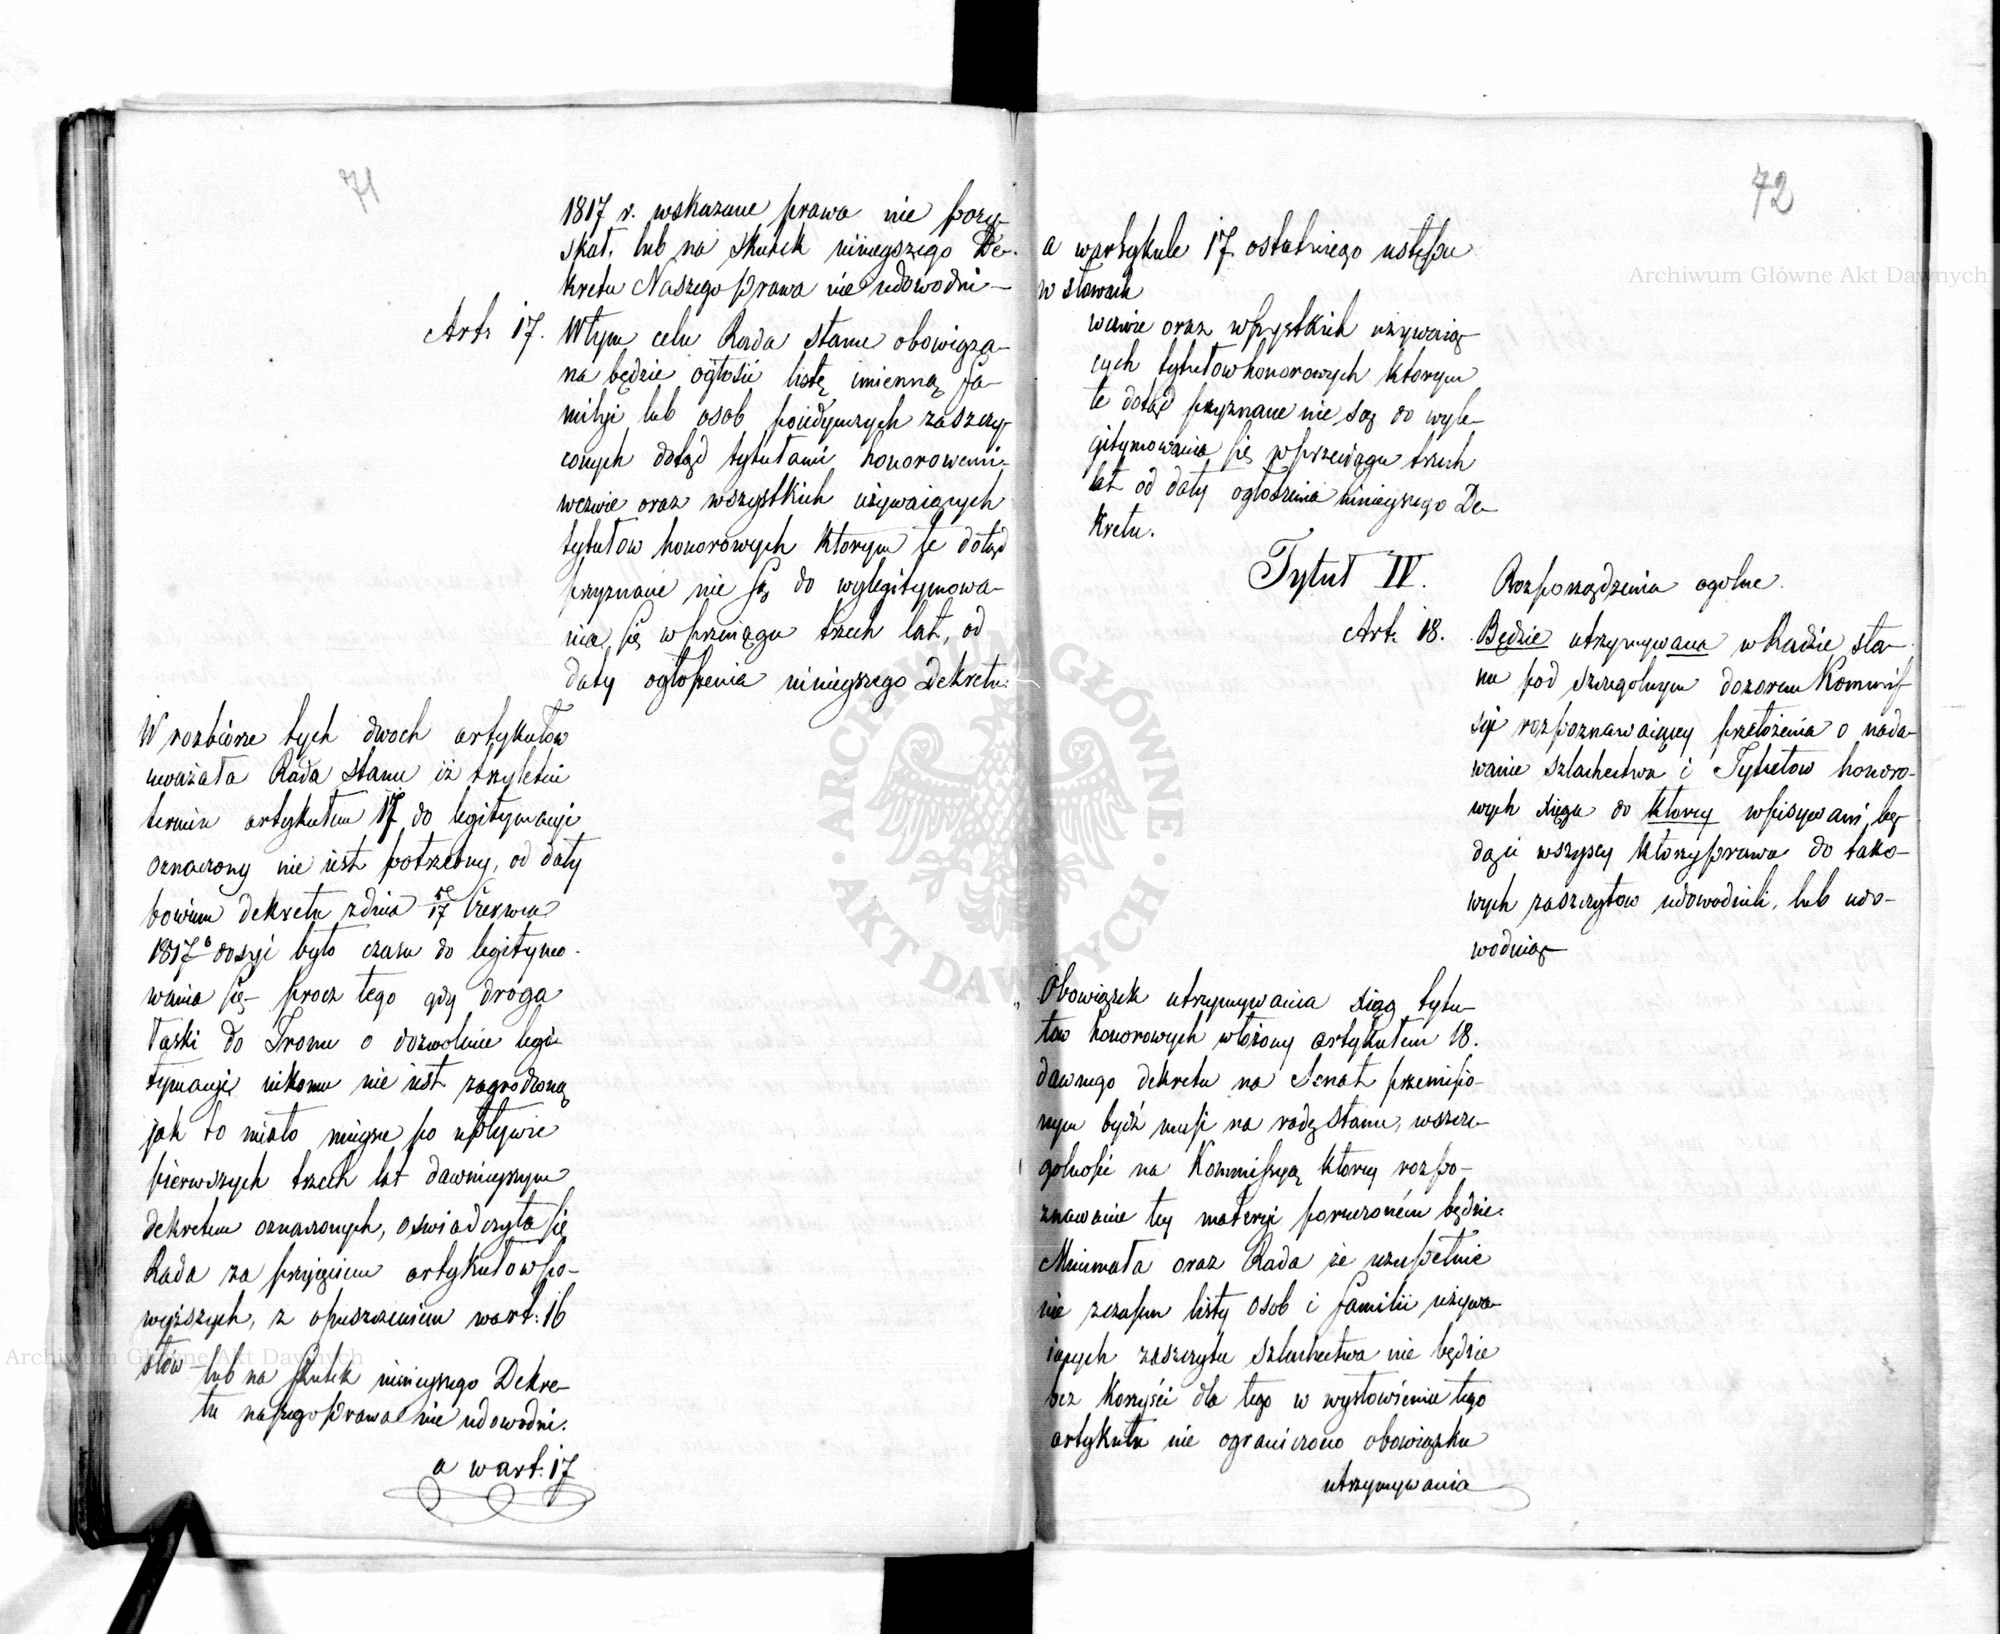 71
1817 r. wskazane prawa nie pozy-
skał, lub na skutek ninieyszego De-
kretu Naszego prawa nie udowodni —
Art: 17. Wtym celu Rada stanu obowiąza-
na będzie ogłosić listę imienną fa-
milyi lub osob poiedynczych zaszczy-
conych dotąd tytułami honorowemi,
wezwie oraz wszystkich używaiących
tytułow honorowych ktorym te dotąd
przyznane nie są do wylegitymowa-
nia się w przeciągu trzech lat, od
daty ogłoszenia ninieyszego Dekretu.
W rozbiorze tych dwoch artykułow
uważała Rada Stanu iż trzyletni
termin artykułem 17 do legitymacyi
oznaczony nie iest potrzebny, od daty
bowiem dekretu zdnia 5/17 Czerwca
1817 o dosyć było czasu do legitymo-
wania się – procz tego gdy droga
łaski do Tronu o dozwolenie legi-
tymacyi nikomu nie iest zagrodzoną
jak to miało mieysce po upływie
pierwszych trzech lat dawnieyszym
dekretem oznaczonych, oswiadczyła się
Rada za przyjęciem artykułow po-
wyższych, z opuszczeniem wart: 16
słów – lub na skutek ninieyszego Dekre-
tu naszego prawa nie udowodni.
a wart: 17
72
a wartykule 17 ostatniego ustępu
w słowach
wezwie oraz wszystkich używaią-
cych tytułow honorowych ktorym
te dotąd przyznane nie są do wyle-
gitymowania się wprzeciągu trzech
lat od daty ogłoszenia ninieyszego De-
kretu.
Tytuł IV. Rozporządzenia ogolne.
Art: 18. Będzie utrzymywana w Radzie sta-
nu pod szczegolnym dozorem Kommis-
syi rozpoznawaiącey przełożenia o nada-
wanie szlachectwa i Tytułow honoro-
wych xięga do ktorey wpisywani bę-
dą ci wszyscy ktorzy prawa do tako-
wych zaszczytow udowodnili, lub udo-
wodnią –
Obowiązek utrzymywania xiąg tytu-
łow honorowych włożony artykułem 18.
dawnego dekretu na Senat przeniesio-
nym bydź musi na radę Stanu, wszcze-
golności na Kommissyą ktorey rozpo-
znawanie tey materyi poruczonem będzie.
Mniemała oraz Rada że uzupełnie
nie zczasem listy osob i familii używa-
iących zaszczytu szlachectwa nie będzie
bez korzyści dla tego w wysłowieniu tego
artykułu nie ograniczono obowiązku
utrzymywania
Archiwum Główne Akt Dawnych
Archiwum Główne Akt Dawnych
ARCHIWUM GŁÓWNE
AKT DAWNYCH